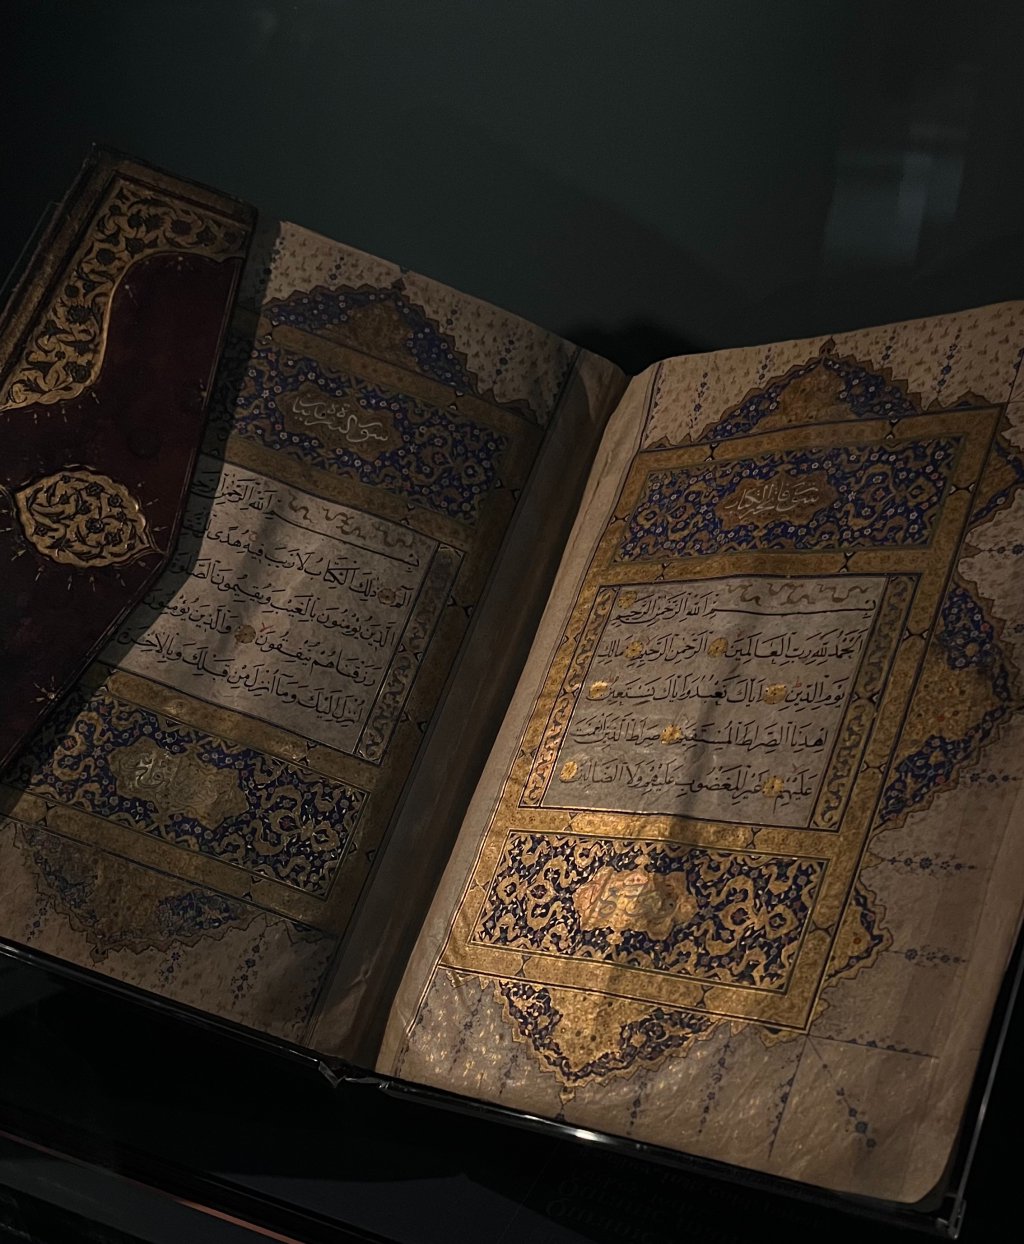 سورة فاتحة الكتاب
بِسْمِ اللهِ الرَّحْمٰنِ الرَّحِيمِ
اَلْحَمْدُ لِلّٰهِ رَبِّ الْعَالَمِينَ اَلرَّحْمٰنِ الرَّحِيمِ مَالِكِ
يَوْمِ الدِّينِ اِيَّاكَ نَعْبُدُ وَاِيَّاكَ نَسْتَعِينُ
اِهْدِنَا الصِّرَاطَ الْمُسْتَقِيمَ صِرَاطَ الَّذِينَ اَنْعَمْتَ
عَلَيْهِمْ غَيْرِ الْمَغْضُوبِ عَلَيْهِمْ وَلَا الضَّالِّينَ
سورة
بِسْمِ اللهِ الرَّحْمٰنِ
الٓمٓ ذٰلِكَ الْكِتَابُ لَا رَيْبَ فِيهِ هُدًى
اَلَّذِينَ يُؤْمِنُونَ بِالْغَيْبِ وَيُقِيمُونَ الصَّلٰوةَ
رَزَقْنَاهُمْ يُنْفِقُونَ وَالَّذِينَ يُؤْمِنُونَ
اُنْزِلَ اِلَيْكَ وَمَا اُنْزِلَ مِنْ قَبْلِكَ وَبِالْاٰخِرَةِ